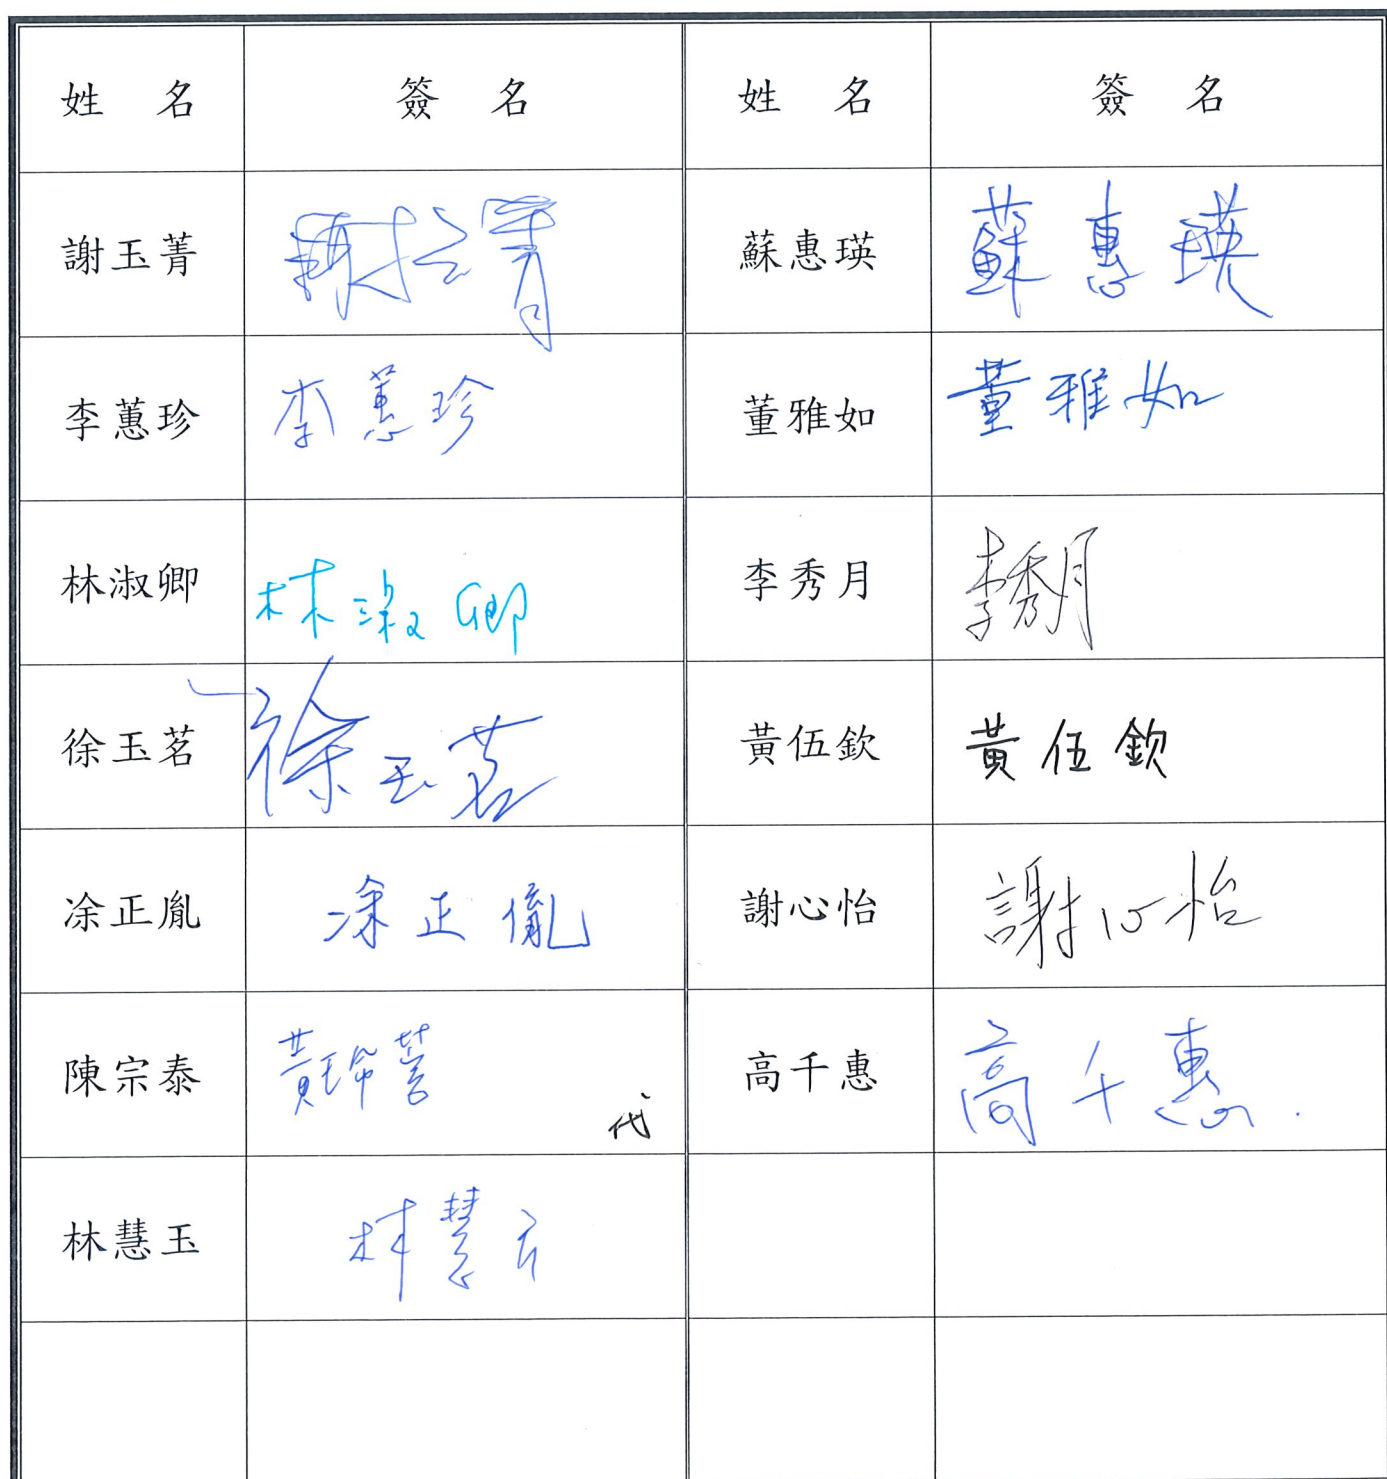 姓 名 簽 名 姓 名 簽 名
謝玉菁 謝玉菁 蘇惠瑛 蘇惠瑛
李蕙珍 李蕙珍 董雅如 董雅如
林淑卿 林淑卿 李秀月 李秀月
徐玉茗 徐玉茗 黃伍欽 黃伍欽
凃正胤 凃正胤 謝心怡 謝心怡
陳宗泰 黃 代 高千惠 高千惠
林慧玉 林慧玉